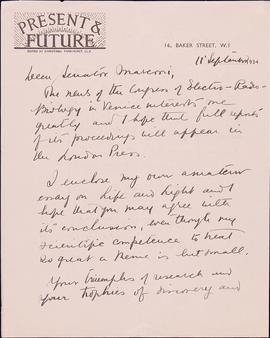 PRESENT &
FUTURE
EDITED BY CHRISTABEL PANKHURST, LL.B.
14, BAKER STREET, W.1
11 September 1934
Dear Senator Marconi,
The news of the Congress of Electro-Radio-
Biology in Venice interests me
greatly and I hope that full reports
of its proceedings will appear in
the London Press.
I enclose my own amateur
essay on Life and Light and I
hope that you may agree with
its conclusion, even though my
scientific competence to treat
so great a theme is but small.
Your triumphs of research and
your trophies of discovery and